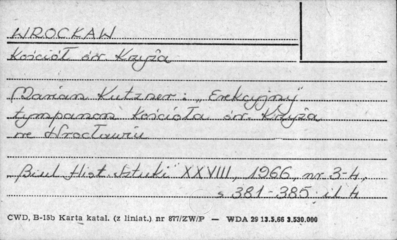 WROCŁAW
Kościół św. Krzyża
Marian Kutzner: „Erekcyjny
tympanon Kościoła św. Krzyża
we Wrocławiu
„Biul. Hist. Sztuki" XXVIII, 1966, nr 3-4,
s 381-385, il 4
CWD, B-15b Karta katal. (z liniat.) nr 877/ZW/P — WDA 29 13.5.66 3.530.000